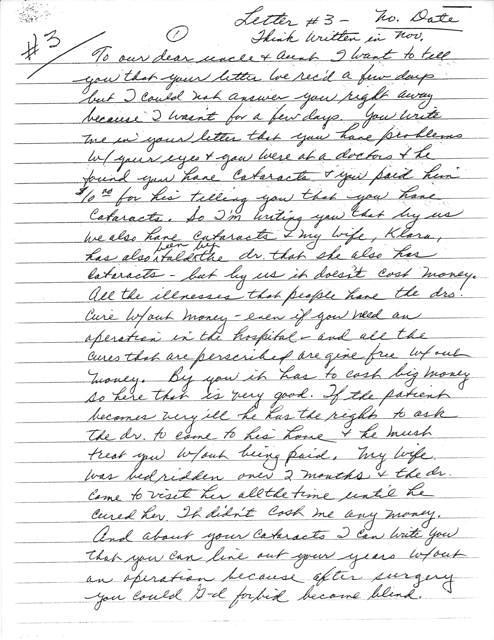 Letter #3 - No. Date
Think Written in Nov.
#3
1
To our dear uncle & Aunt I want to tell
you that your letter we rec'd a few days
but I could not answer you right away
because I wasn't for a few days. You write
me in your letter that you have problems
w/ your eyes & you were at a doctors & he
found you have Cataracts & you paid him
$10.00 for his telling you that you have
Cataracts. So I'm writing you that by us
we also have cataracts & my wife, Klara,
has also been by the dr. that she also has
cataracts - but by us it doesn't cost money.
All the illnesses that people have the drs.
cure w/out money - even if you need an
operation in the hospital - and all the
cures that are perscribed are give free w/out
money. By you it has to cost big money
so here that is very good. If the patient
becomes very ill he has the right to ask
the dr. to come to his home & he must
treat you w/out being paid. My wife
was bed ridden over 2 months & the dr.
come to visit her all the time until he
cured her. It didn't cost me any money.
And about your cataracts I can write you
that you can live out your years w/out
an operation because after surgery
you could G-d forbid become blind.